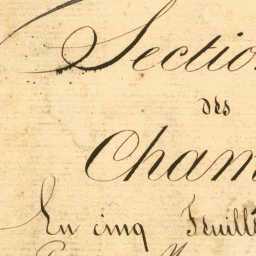 Sectio
des
Cham
En cinq Feuille